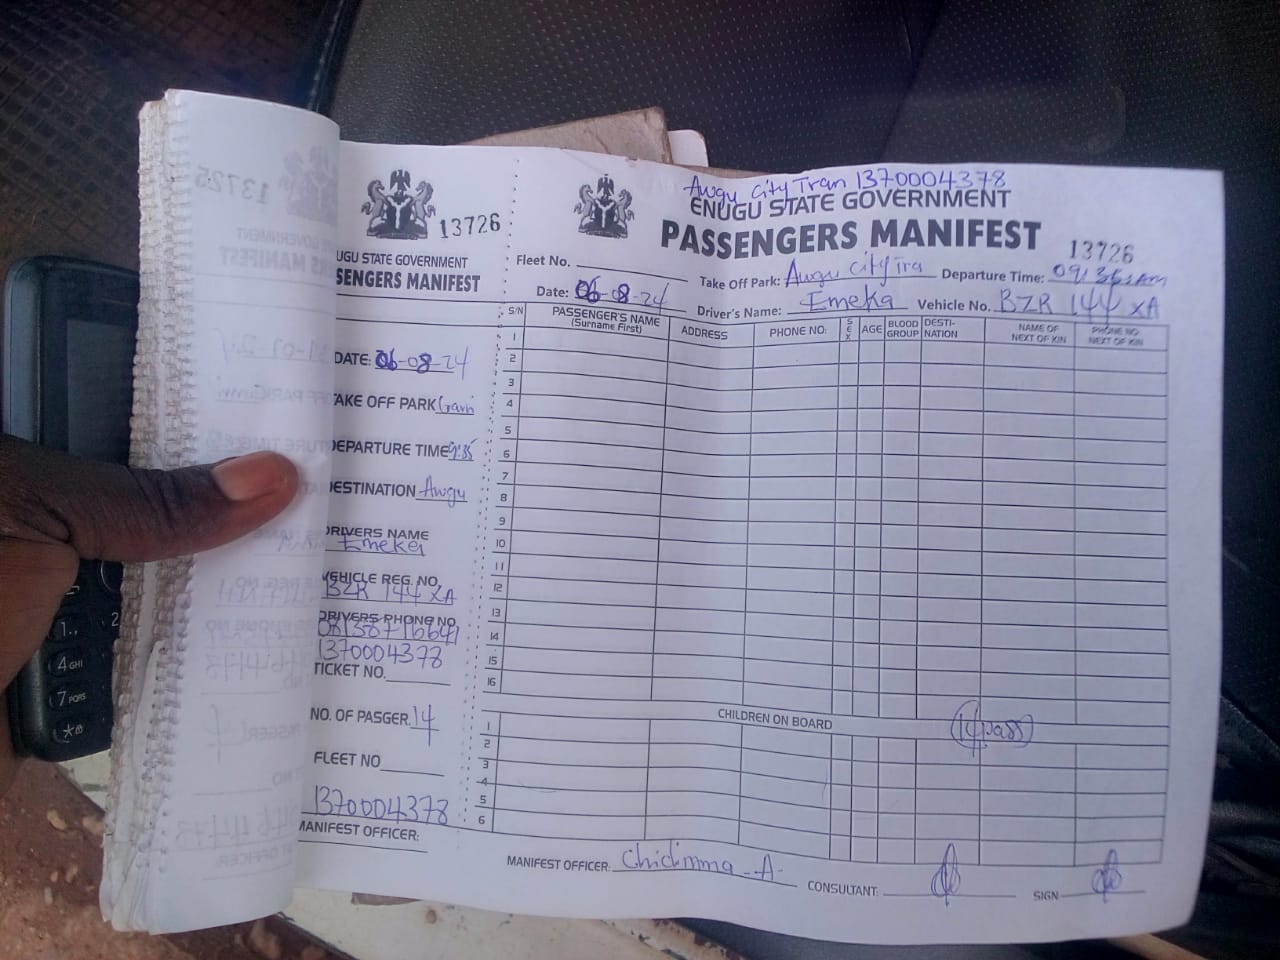 13725
13726
UGU STATE GOVERNMENT
SENGERS MANIFEST
DATE: 06-08-24
TAKE OFF PARK Gariki
DEPARTURE TIME 9:35
DESTINATION Awgu
DRIVERS NAME
Emeka
VEHICLE REG. NO.
BZR 144 XA
DRIVERS PHONE NO
1370004378
TICKET NO.
NO. OF PASGER. 14
FLEET NO
1370004378
MANIFEST OFFICER:
Awgu City Tran 1370004378
ENUGU STATE GOVERNMENT
PASSENGERS MANIFEST
13726
Fleet No. Take Off Park: Awgu City Tra Departure Time: 09:36:AM
Date: 06-08-24 Driver's Name: Emeka Vehicle No. BZR 144 XA
S/N PASSENGER'S NAME (Surname First) ADDRESS PHONE NO: SEX AGE BLOOD GROUP DESTI-NATION NAME OF NEXT OF KIN PHONE NO. NEXT OF KIN
1
2
3
4
5
6
7
8
9
10
11
12
13
14
15
16
CHILDREN ON BOARD
14 pass
1
2
3
4
5
6
MANIFEST OFFICER: Chidinma A. CONSULTANT: SIGN
2
4 GHI
7 PQRS